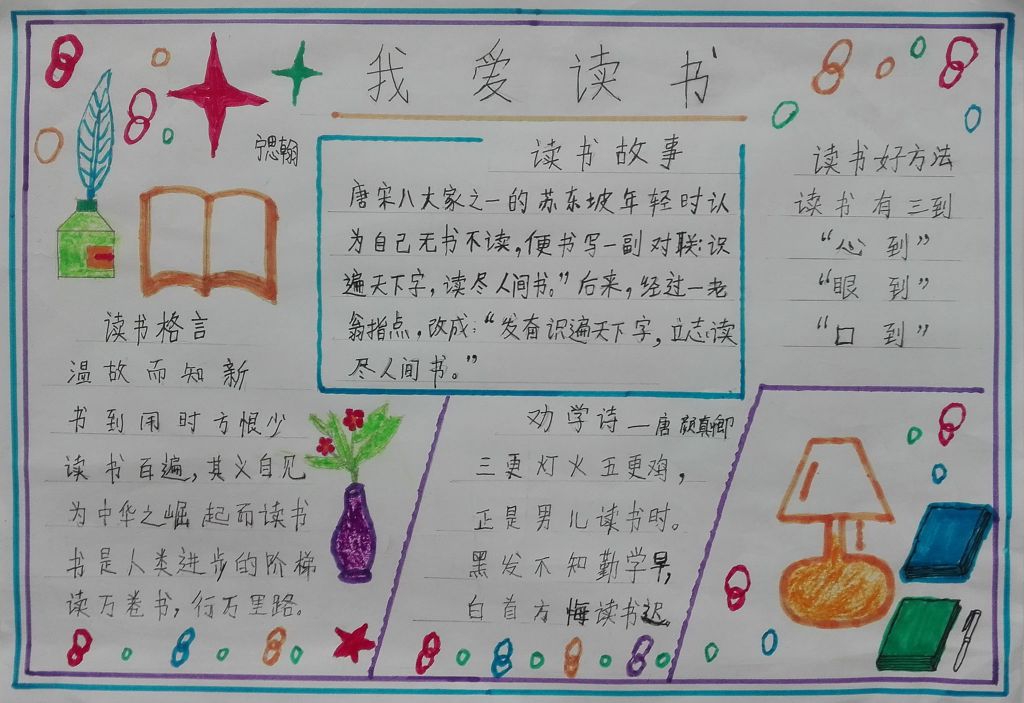 我爱读书
宁思翰
读书故事
唐宋八大家之一的苏东坡年轻时认
为自己无书不读，便书写一副对联：识
遍天下字，读尽人间书。”后来，经过一老
翁指点，改成：“发奋识遍天下字，立志读
尽人间书。”
读书好方法
读书有三到
“心到”
“眼到”
“口到”
读书格言
温故而知新
书到用时方恨少
读书百遍，其义自见
为中华之崛起而读书
书是人类进步的阶梯
读万卷书，行万里路。
劝学诗—唐 颜真卿
三更灯火五更鸡，
正是男儿读书时。
黑发不知勤学早，
白首方悔读书迟。